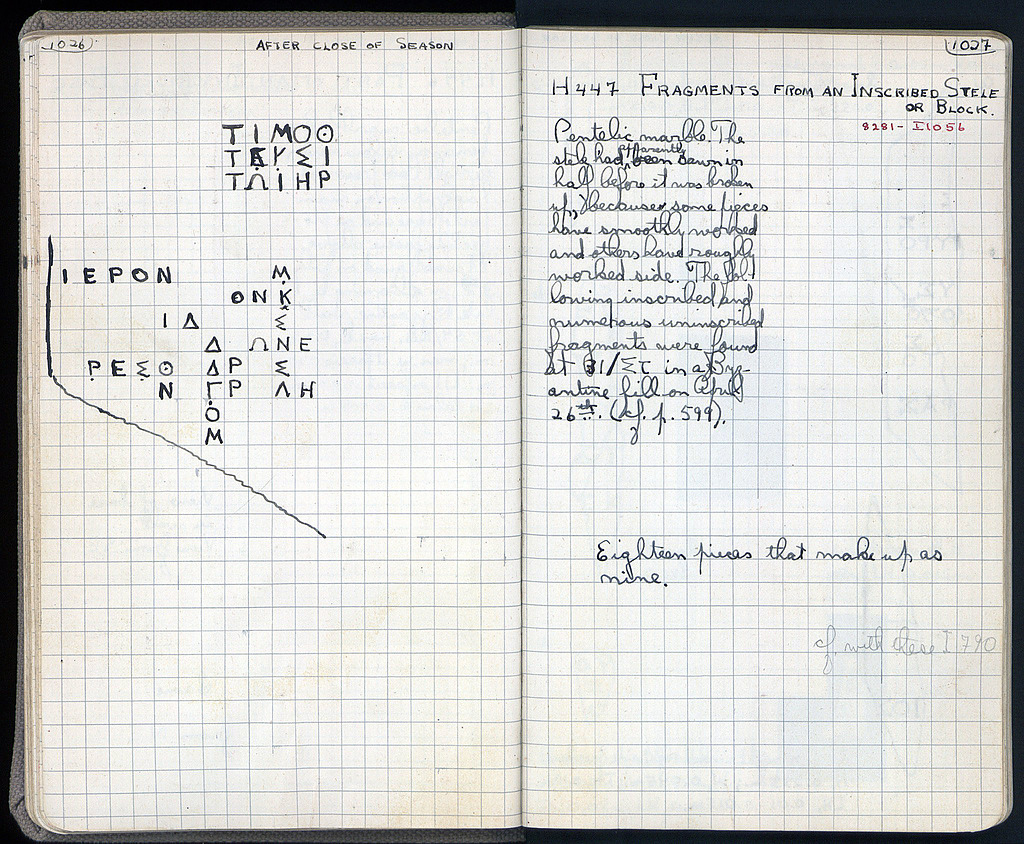 1026
AFTER CLOSE OF SEASON
ΤΙΜΟΘ
ΤΩΙΗΡ
ΙΕΡΟΝ Μ
ΟΝΚ
ΙΔ Σ
Δ ΩΝΕ
ΡΕΣΘ ΔΡ Σ
Ν ΓΡ ΛΗ
Ο
Μ
1027
H 447 FRAGMENTS FROM AN INSCRIBED STELE
OR BLOCK.
8281- I 1056
Pentelic marble. The
stele had apparently been sawn in
half before it was broken
up, because some pieces
have smoothly worked
and others have roughly
worked side. The fol-
lowing inscribed and
numerous uninscribed
fragments were found
at 31/ΣΤ in a Byz-
antine fill on April
26th. (cf. p. 599).
Eighteen pieces that make up as
nine.
cf. with these I 790